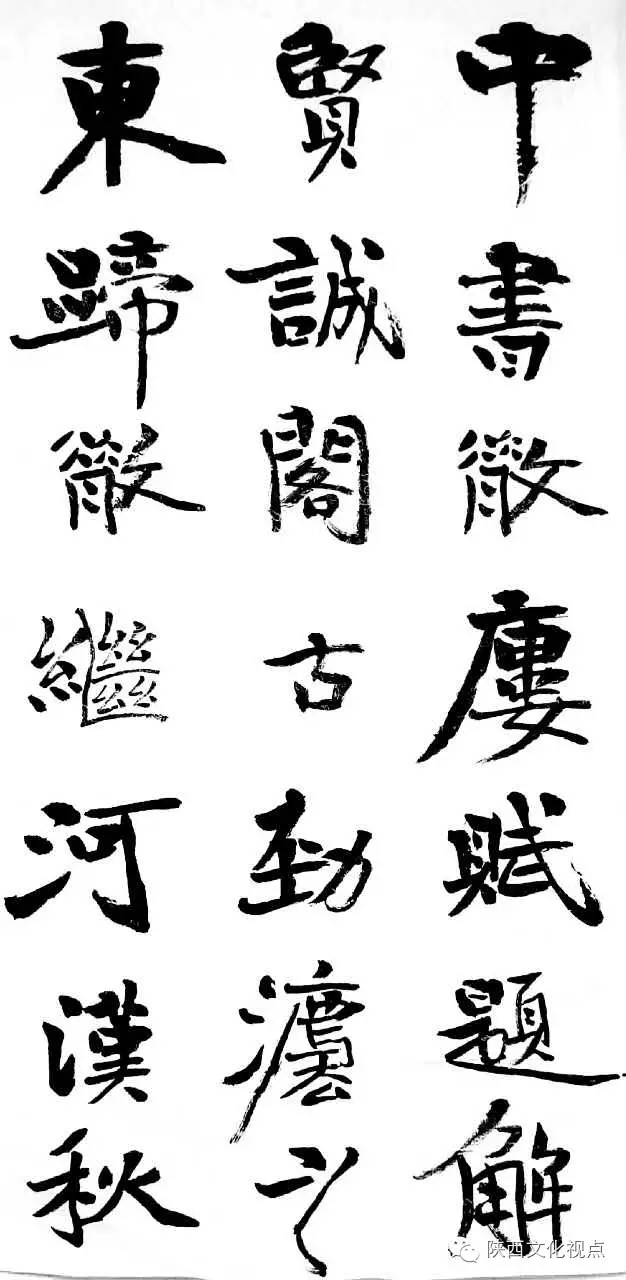 中書廔賦題解
賢誠閣古勁之
東蹄繼河漢秋
陕西文化视点